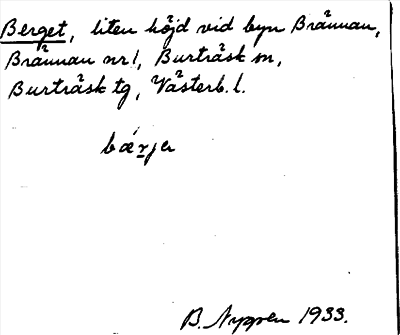 Berget, liten höjd vid byn Brännan,
Brännan nr 1, Burträsk sn,
Burträsk tg, Västerb. l.
bǽrjer
B. Nygren 1933.